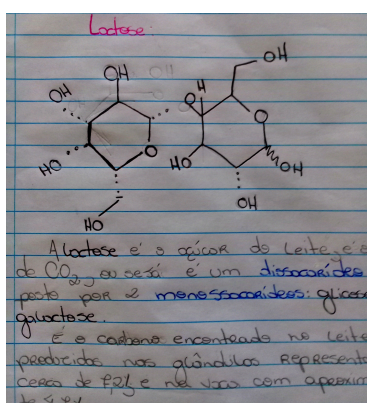 Lactose:
OH
OH
OH
OH
O
H
O
O
HO
HO
OH
OH
HO
A lactose é o açúcar do leite, é
de CO2, ou seja é um dissacarídeo
posto por 2 monossacarídeos: glicose
galactose.
É o carbono encontrado no leite
produzidos nas glândulas Represent
cerca de 7,2% e na vaca com aproxim